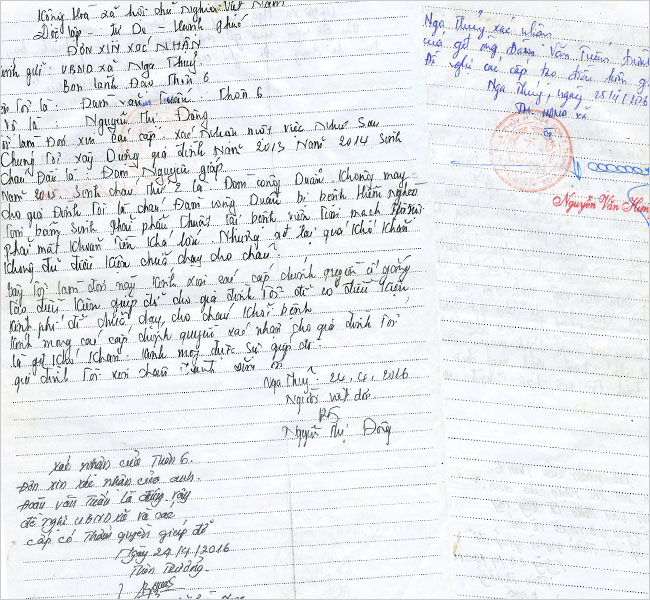 Cộng Hoà xã hội chủ Nghĩa Việt Nam
Độc lập - Tự Do - Hạnh Phúc
ĐƠN XIN XÁC NHẬN
kính gửi: UBND xã Nga Thuỷ
Ban lãnh Đạo Thôn 6
Tên Tôi là: Đam văn Thôn 6
Vợ là: Nguyễn Thị Đông
Tôi làm Đơn xin các cấp xác Nhận một việc Như Sau
Chúng Tôi xây Dựng gia đình Năm 2013 Năm 2014 Sinh
cháu Đầu là Đam Nguyên giáp
Năm 2015 Sinh cháu Thứ 2 là Đam công Quân Không may
cho gia Đình Tôi là cháu Đam công Quân bị bệnh Hiểm nghèo
Tim bẩm Sinh Phải phẩu Thuật Tại bệnh viện Tim mạch
Phải mất khoản Tiền khá lớn Nhưng
không đủ điều kiện chữa chạy cho cháu
Vậy Tôi làm đơn này kính xin các cấp chính quyền cố gắng
Tạo điều kiện giúp đỡ cho gia đình Tôi để có điều kiện
kinh phí để chữa chạy cho cháu khỏi bệnh
kính mong các cấp chính quyền xác nhận cho gia đình Tôi
là khó khăn kính mong được Sự giúp đỡ
gia đình Tôi xin chân Thành cảm ơn
Nga Thuỷ 24.4.2016
Người viết đơn
Nguyễn Thị Đông
xác nhận của Thôn 6.
Đơn xin xác nhận của anh
văn Tuấn là đúng vậy
đề nghị UBND xã và các
cấp có Thẩm quyền giúp đỡ
Ngày 24/4/2016
Thôn Trưởng.
Nga Thuỷ xác nhận
của ông Đam Văn
Đề nghị các cấp tạo điều kiện
Nga Thuỷ, ngày 25/4/2016
TM UBND xã
Nguyễn Văn